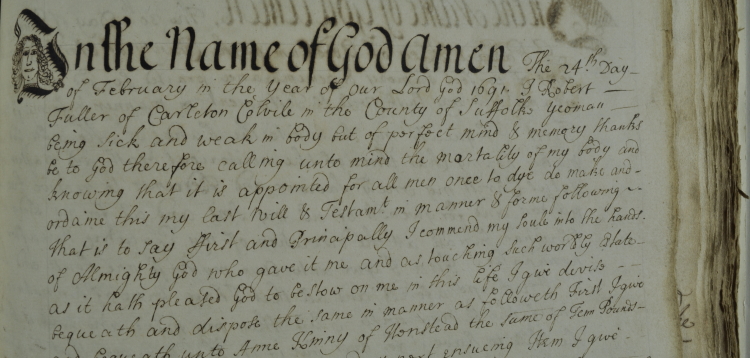 In the Name of God Amen The 24th Day
of February in the Year of our Lord God 1691 I Robert
Fuller of Carleton Colvile in the County of Suffolk Yeoman
being sick and weak in body but of perfect mind & memory thanks
be to God therefore calling unto mind the mortality of my body and
knowing that it is appointed for all men once to dye do make and
ordaine this my last will & Testamt in manner & forme following
that is to say First and Principally I commend my soule into the hands
of Almighty God who gave it me and as touching such worldly Estate
as it hath pleased God to bestow on me in this life I give devise
bequeath and dispose the same in manner as followeth First I give
and bequeath unto Anne of Henstead the same of Tenn Pounds
next ensueing Item I give